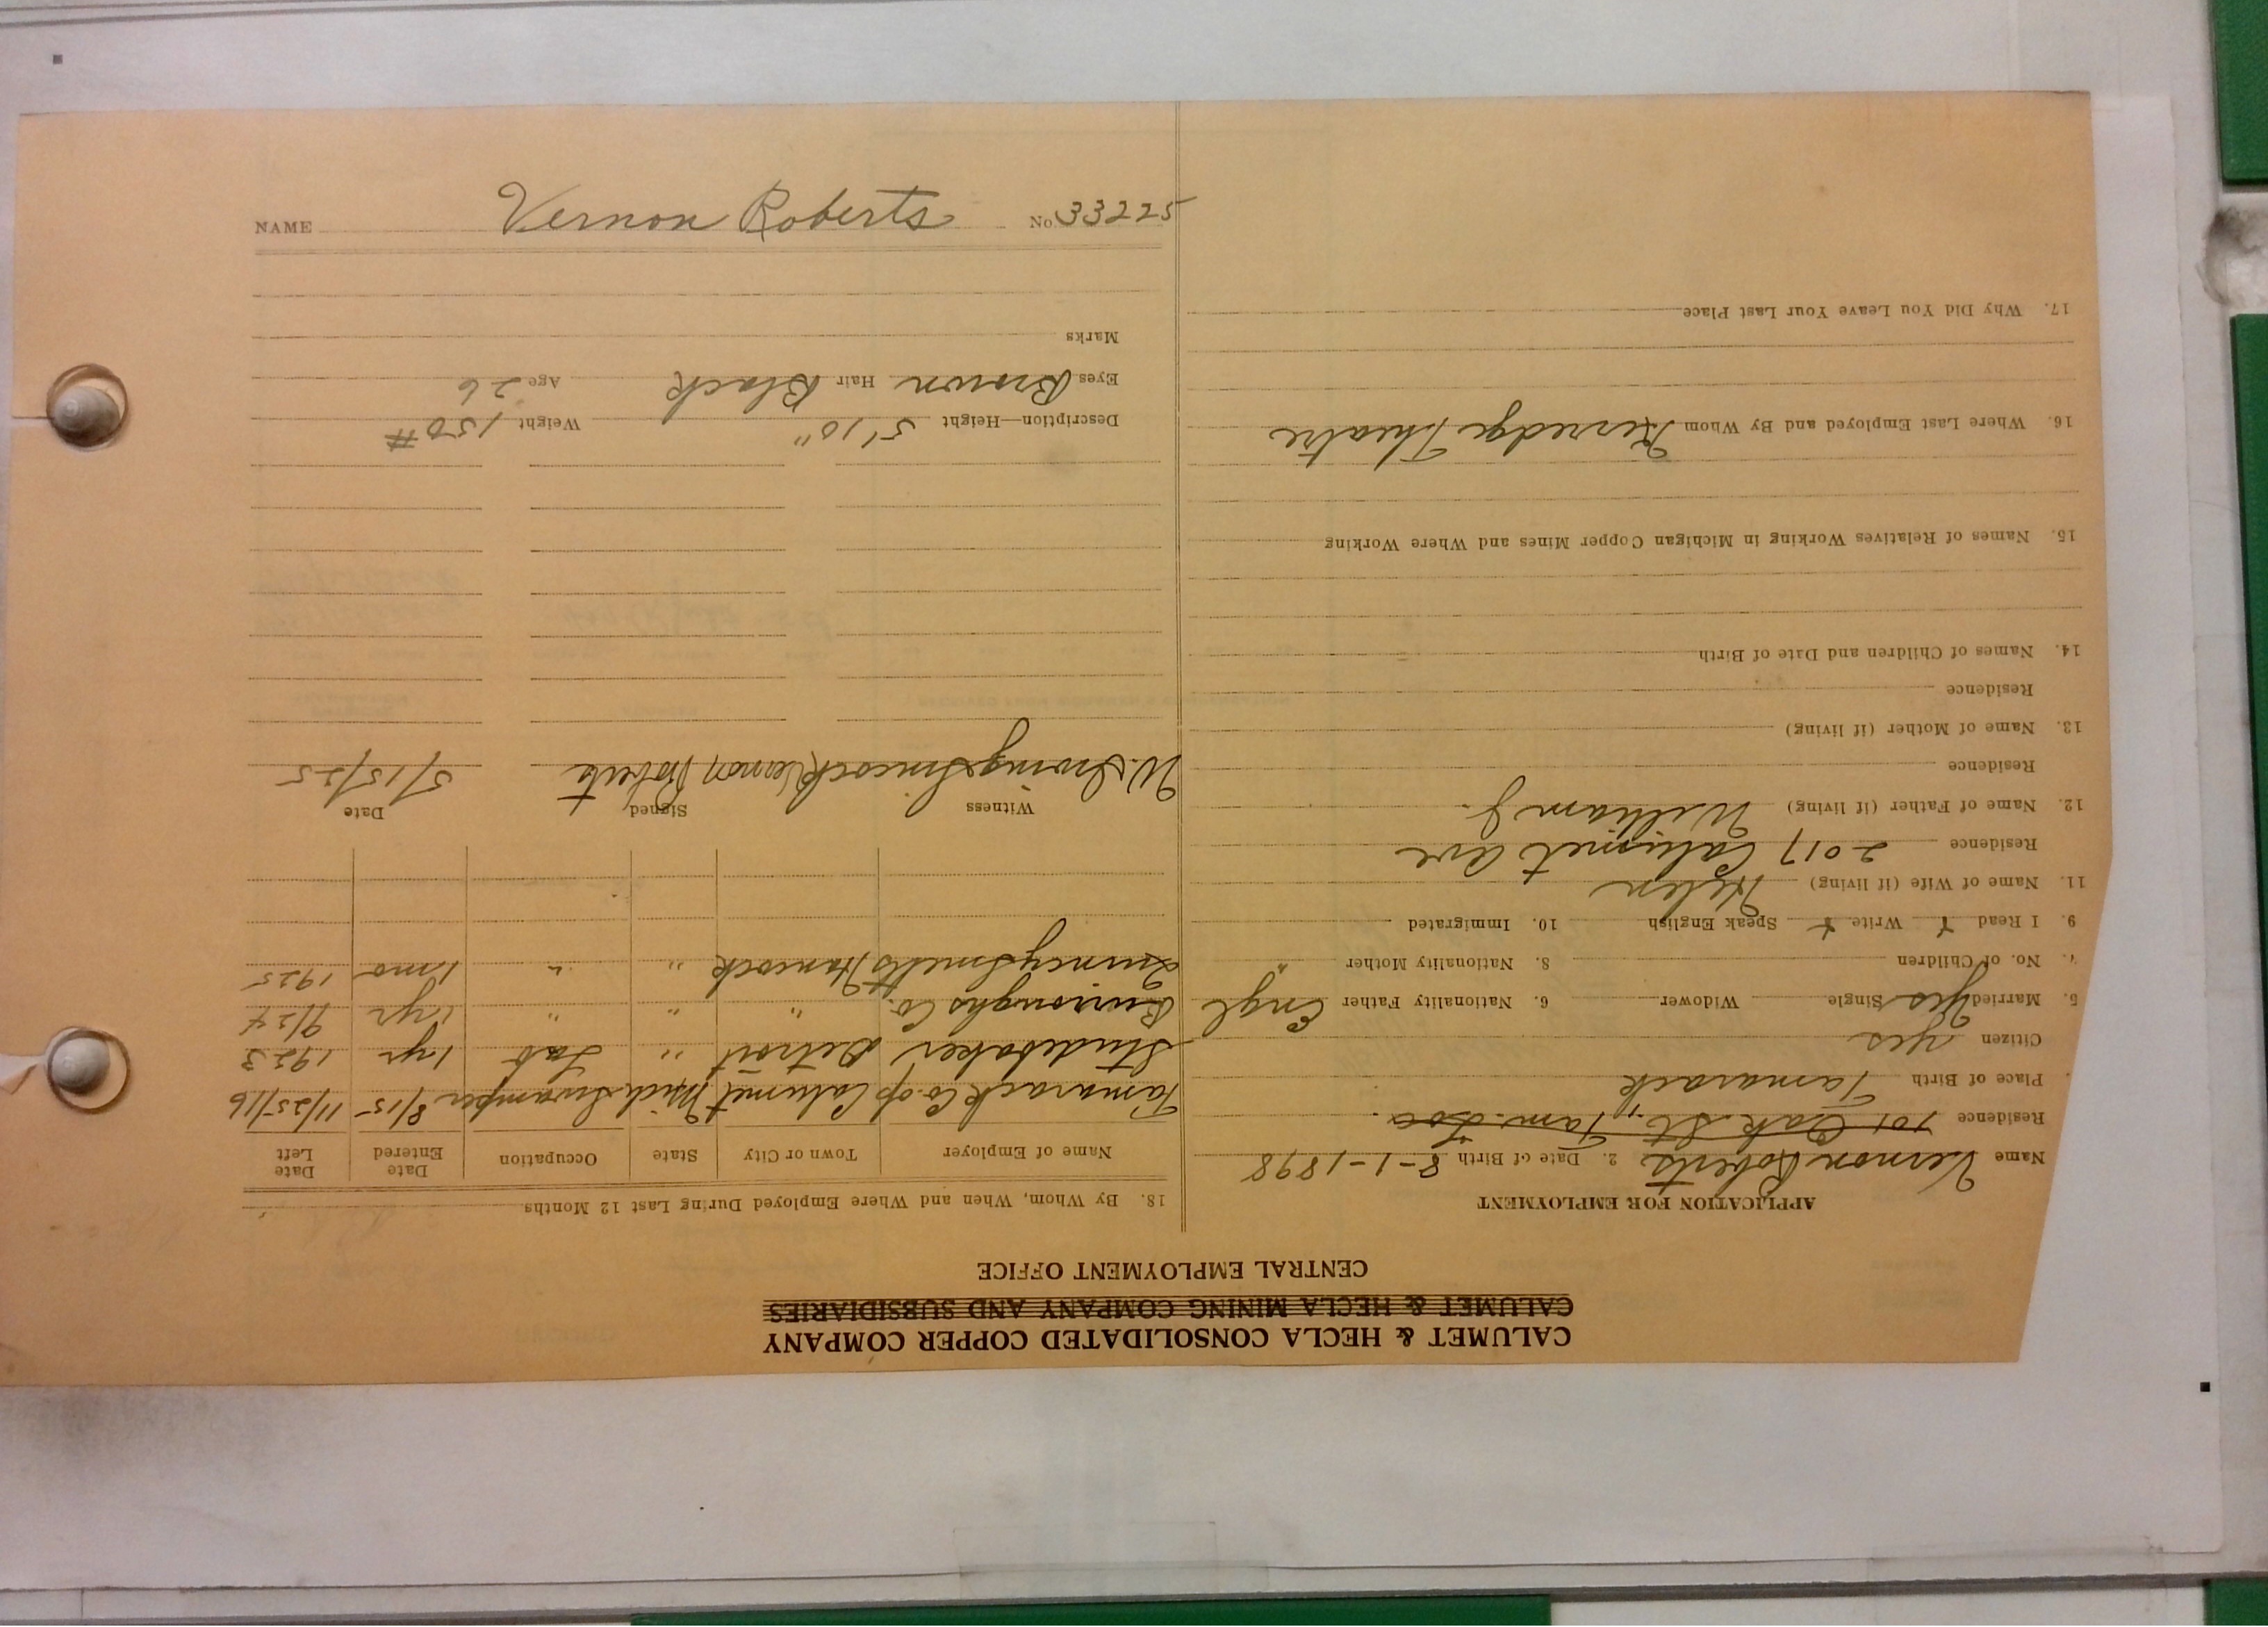 CALUMET & HECLA CONSOLIDATED COPPER COMPANY
CALUMET & HECLA MINING COMPANY AND SUBSIDIARIES
CENTRAL EMPLOYMENT OFFICE
APPLICATION FOR EMPLOYMENT
Name Vernon Roberts 2. Date of Birth 8-1-1898
Residence 101 Oak St., Tam. Loc.
Place of Birth Tamarack
Citizen yes
5. Married Yes Single Widower 6. Nationality Father Engl
7. No. of Children 8. Nationality Mother "
9. I Read Y Write Y Speak English 10. Immigrated
11. Name of Wife (if living) Helen
Residence 2017 Calumet Ave
12. Name of Father (if living) William J.
Residence
13. Name of Mother (if living)
Residence
14. Names of Children and Date of Birth
15. Names of Relatives Working in Michigan Copper Mines and Where Working
16. Where Last Employed and By Whom Kerredge Theatre
17. Why Did You Leave Your Last Place
18. By Whom, When and Where Employed During Last 12 Months
Name of Employer Town or City State Occupation Date Entered Date Left
Tamarack Co-op Calumet Mich Swamper 8/15 11/25/16
Studebaker Detroit " Lab 1 yr 1923
Burroughs Co. " " " 1 yr 9/24
Quincy Smelts Hancock " " 1 mo 1925
Witness Signed Date
W. Irving Simcock Vernon Roberts 5/15/25
Description—Height 5'10" Weight 150#
Eyes Brown Hair Black Age 26
Marks
NAME Vernon Roberts No. 33225